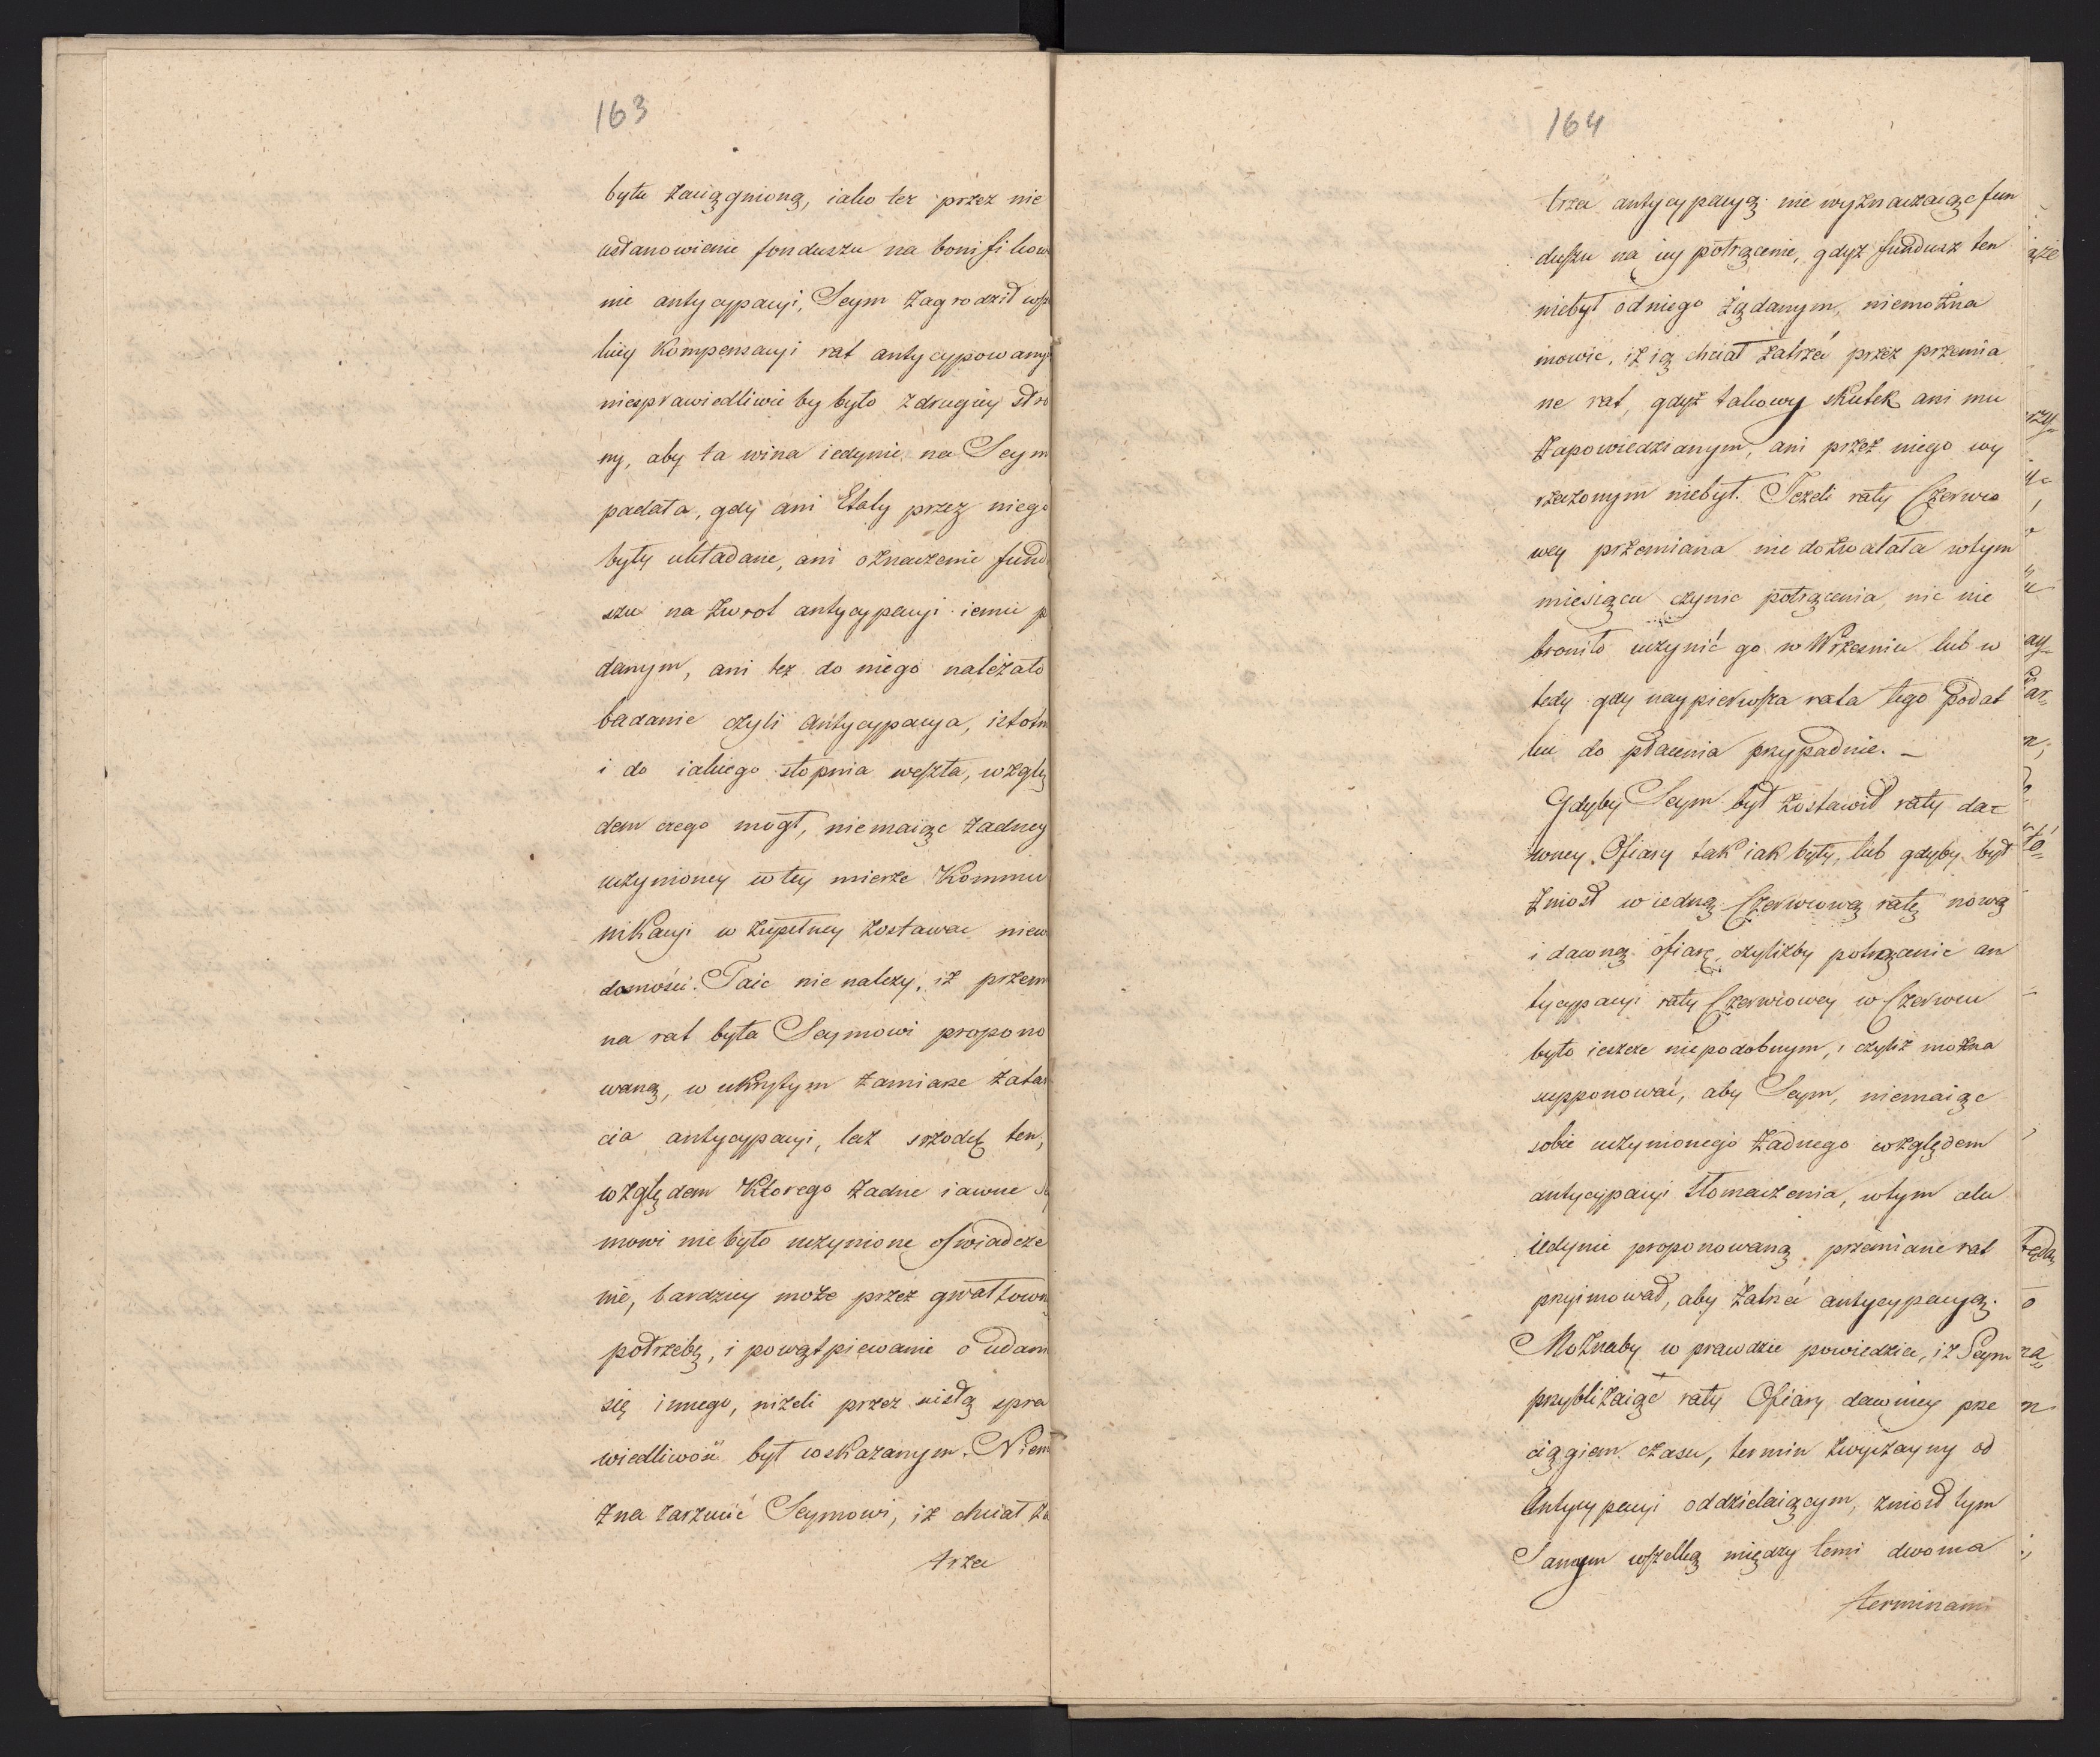 163
była zaciągnioną, iako tez przez nie
ustanowienie fonduszu na bonifikow
nie antycypacyi, Seym zagrodził wsze
lkiey Kompensacyi rat antycypowany
niesprawiedliwie by było z drugiey stro
ny, aby ta wina iedynie na Seym
padała, gdy ani Etaty przez niego
były układane, ani oznaczenie fund
szu na zwrot antycypacyi iemu p
danym, ani tez do niego należało
badanie czyli antycypacya, istotn
i do iakiego stopnia weszła, wzglę
dem czego mogł, niemaiąc żadney
uczynioney w tey mierze Kommu
nikacyi w zupełney zostawac niew
domości. Taic nie nalezy, iż przem
na rat była Seymowi propono
waną, w ukrytym zamiarze zatar
cia antycypacyi, lecz srzodek ten,
względem Ktorego żadne iawne Sey
mowi nie było uczynione oświadcze
nie, bardziey może przez gwałtown
potrzebę, i powątpiewanie o udani
się innego, niżeli przez scisłą spra
wiedliwość był wskazanym. Niemo
żna zarzucić Seymowi, iż chciał za
trzeć
164
trzeć antycypacyą nie wyznaczaiąc fun
duszu na iey potrącenie, gdyż fundusz ten
niebył od niego żądanym, niemożna
mowic, iż ią chciał zatrzeć przez przemia
ne rat, gdyż takowy skutek ani mu
zapowiedzianym, ani przez niego wy
rzeczonym niebył. Jeżeli raty Czerwco
wey przemiana nie dozwalała w tym
miesiącu czynic potrącenia, nic nie
broniło uczynić go w Wrześniu lub w
tedy gdy naypierwsza rata tego podat
ku do płacenia przypadnie. –
Gdyby Seym był zostawił raty da=
wney Ofiary tak iak były, lub gdyby był
zniosł w iedną Czerwcową ratę nową
i dawną ofiarę, czyliżby potrącenie an
tycypacyi raty Czerwcowey w Czerwcu
było ieszcze niepodobnym, i czyliż można
supponować, aby Seym, niemaiąc
sobie uczynionego żadnego względem
antycypacyi tłomaczenia, w tym celu
iedynie proponowaną przemianę rat
przyimował, aby zatrzeć antycypacyą.
Możnaby w prawdzie powiedziec, iż Seym
przybliżaiąc raty Ofiary dawniey prze
ciągiem czasu, termin zwyczayny od
Antycypacyi oddzielaiącym, zniosł tym
Samym wszelką między temi dwoma
terminami